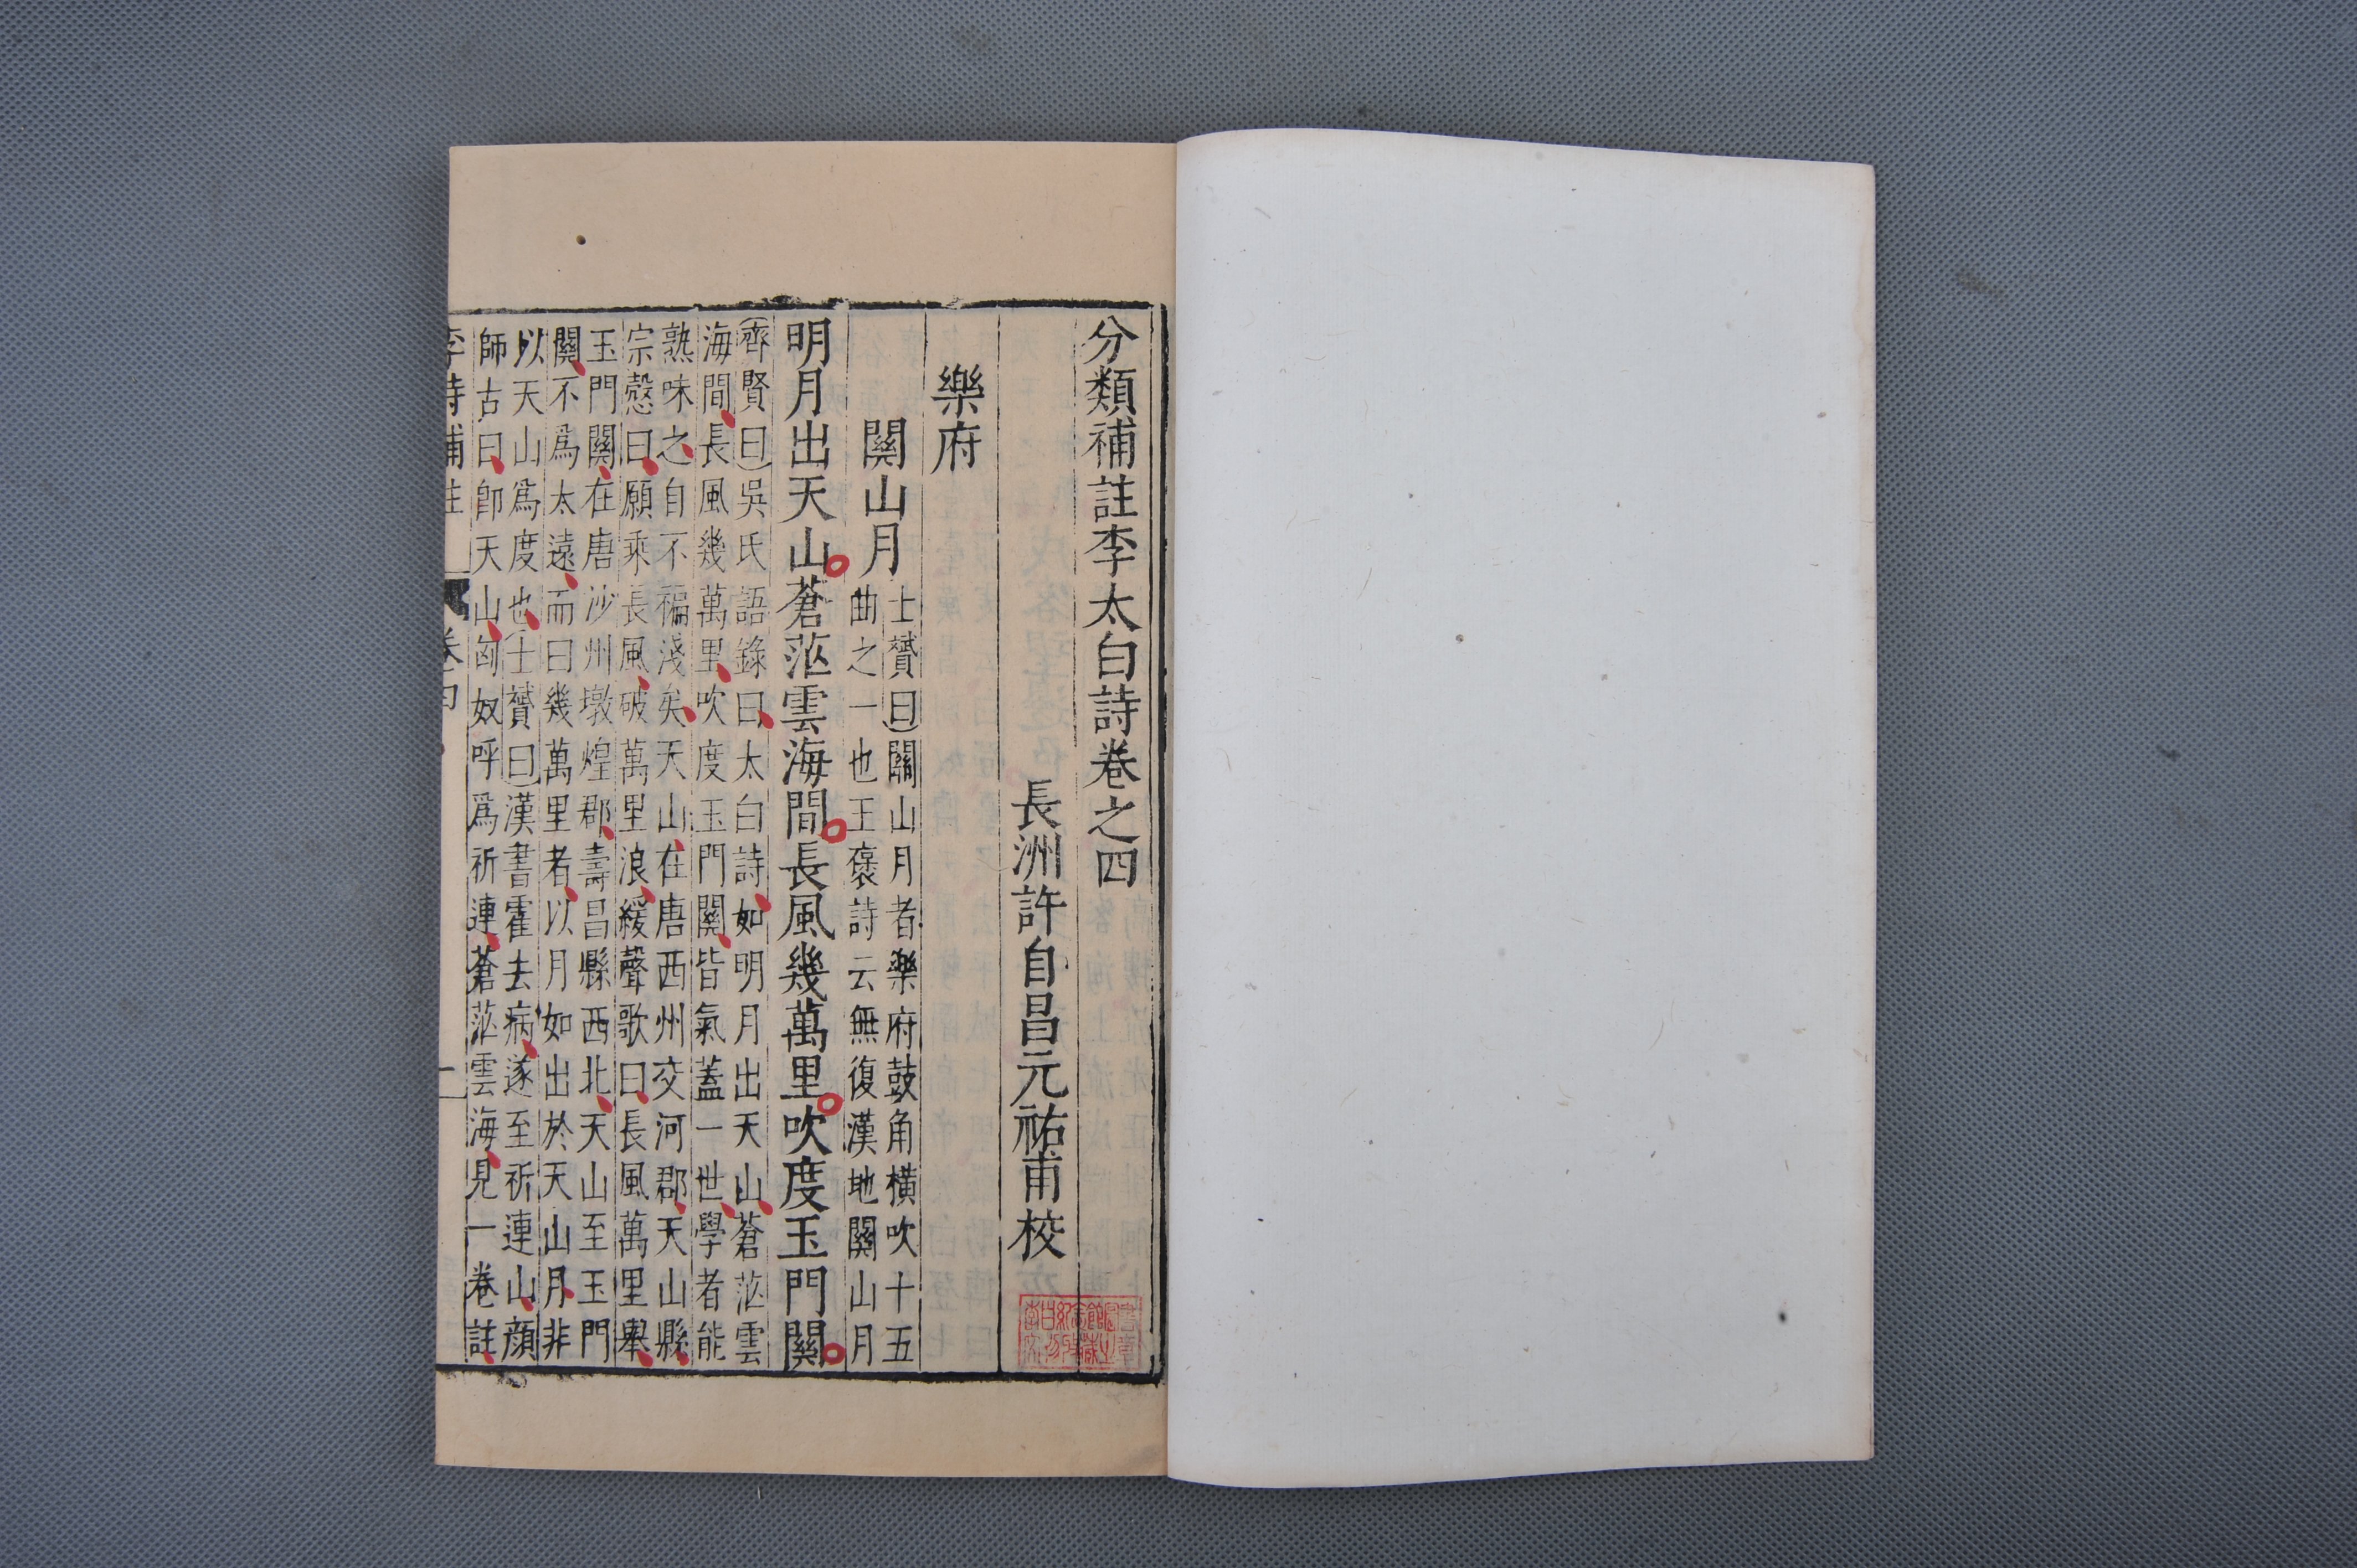 分類補註李太白詩卷之四
長洲許自昌元祐甫校
樂府
關山月
士贇曰關山月者樂府鼓角橫吹十五
曲之一也王褒詩云無復漢地關山月
明月出天山蒼茫雲海間長風幾萬里吹度玉門關
齊賢曰吳氏語錄曰太白詩如明月出天山蒼茫雲
海間長風幾萬里吹度玉門關皆氣蓋一世學者能
熟味之自不褊淺矣天山在唐西州交河郡天山縣
宗慤曰願乘長風破萬里浪緩聲歌曰長風萬里舉
玉門關在唐沙州墩煌郡壽昌縣西北天山至玉門
關不爲太遠而曰幾萬里者以月如出於天山月非
以天山爲度也士贇曰漢書霍去病遂至祈連山顏
師古曰卽天山匈奴呼爲祈連蒼茫雲海見一卷註
李詩補註 卷四 一